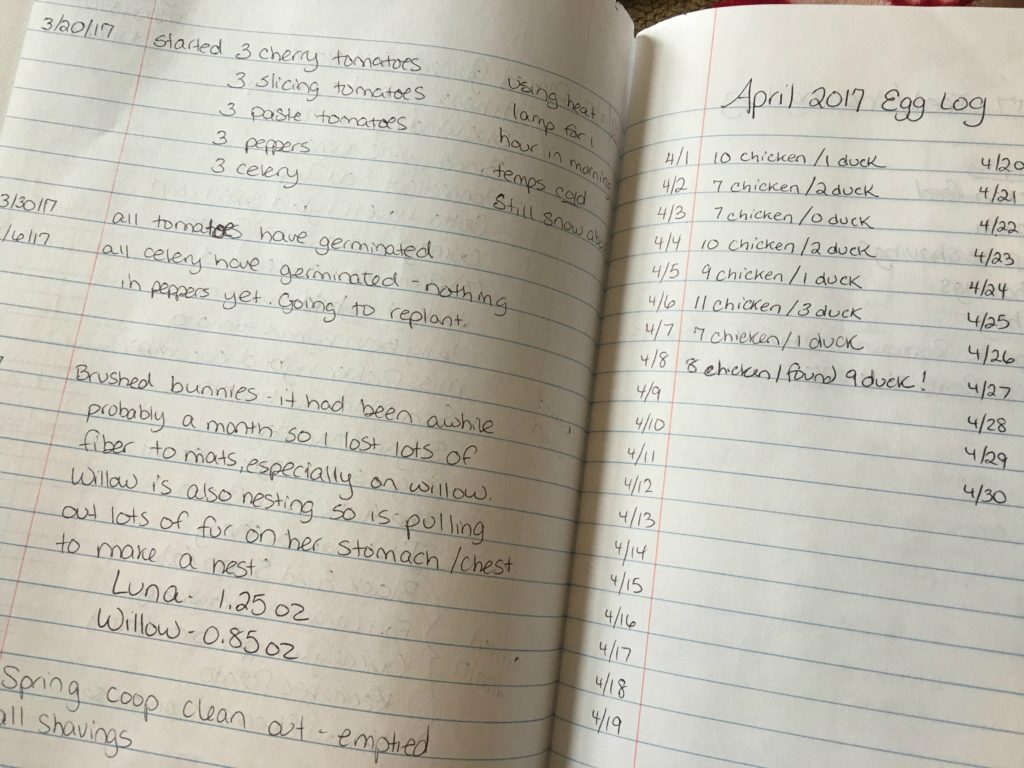 3/20/17 Started 3 cherry tomatoes
3 slicing tomatoes
3 paste tomatoes
3 peppers
3 celery
using heat
lamp for 1
hour in morning
temps cold
Still snow
3/30/17 all tomatoes have germinated
/6/17 all celery have germinated - nothing
in peppers yet. Going to replant.
Brushed bunnies - it had been awhile
probably a month so I lost lots of
fiber to mats, especially on Willow.
Willow is also nesting so is pulling
out lots of fur on her stomach/chest
to make a nest
Luna - 1.25 oz
Willow - 0.85 oz
Spring coop clean out - emptied
all shavings
April 2017 Egg Log
4/1 10 chicken/1 duck
4/2 7 chicken/2 duck
4/3 7 chicken/0 duck
4/4 10 chicken/2 duck
4/5 9 chicken/1 duck
4/6 11 chicken/3 duck
4/7 7 chicken/1 duck
4/8 8 chicken/(found) 9 duck!
4/9
4/10
4/11
4/12
4/13
4/14
4/15
4/16
4/17
4/18
4/19
4/20
4/21
4/22
4/23
4/24
4/25
4/26
4/27
4/28
4/29
4/30